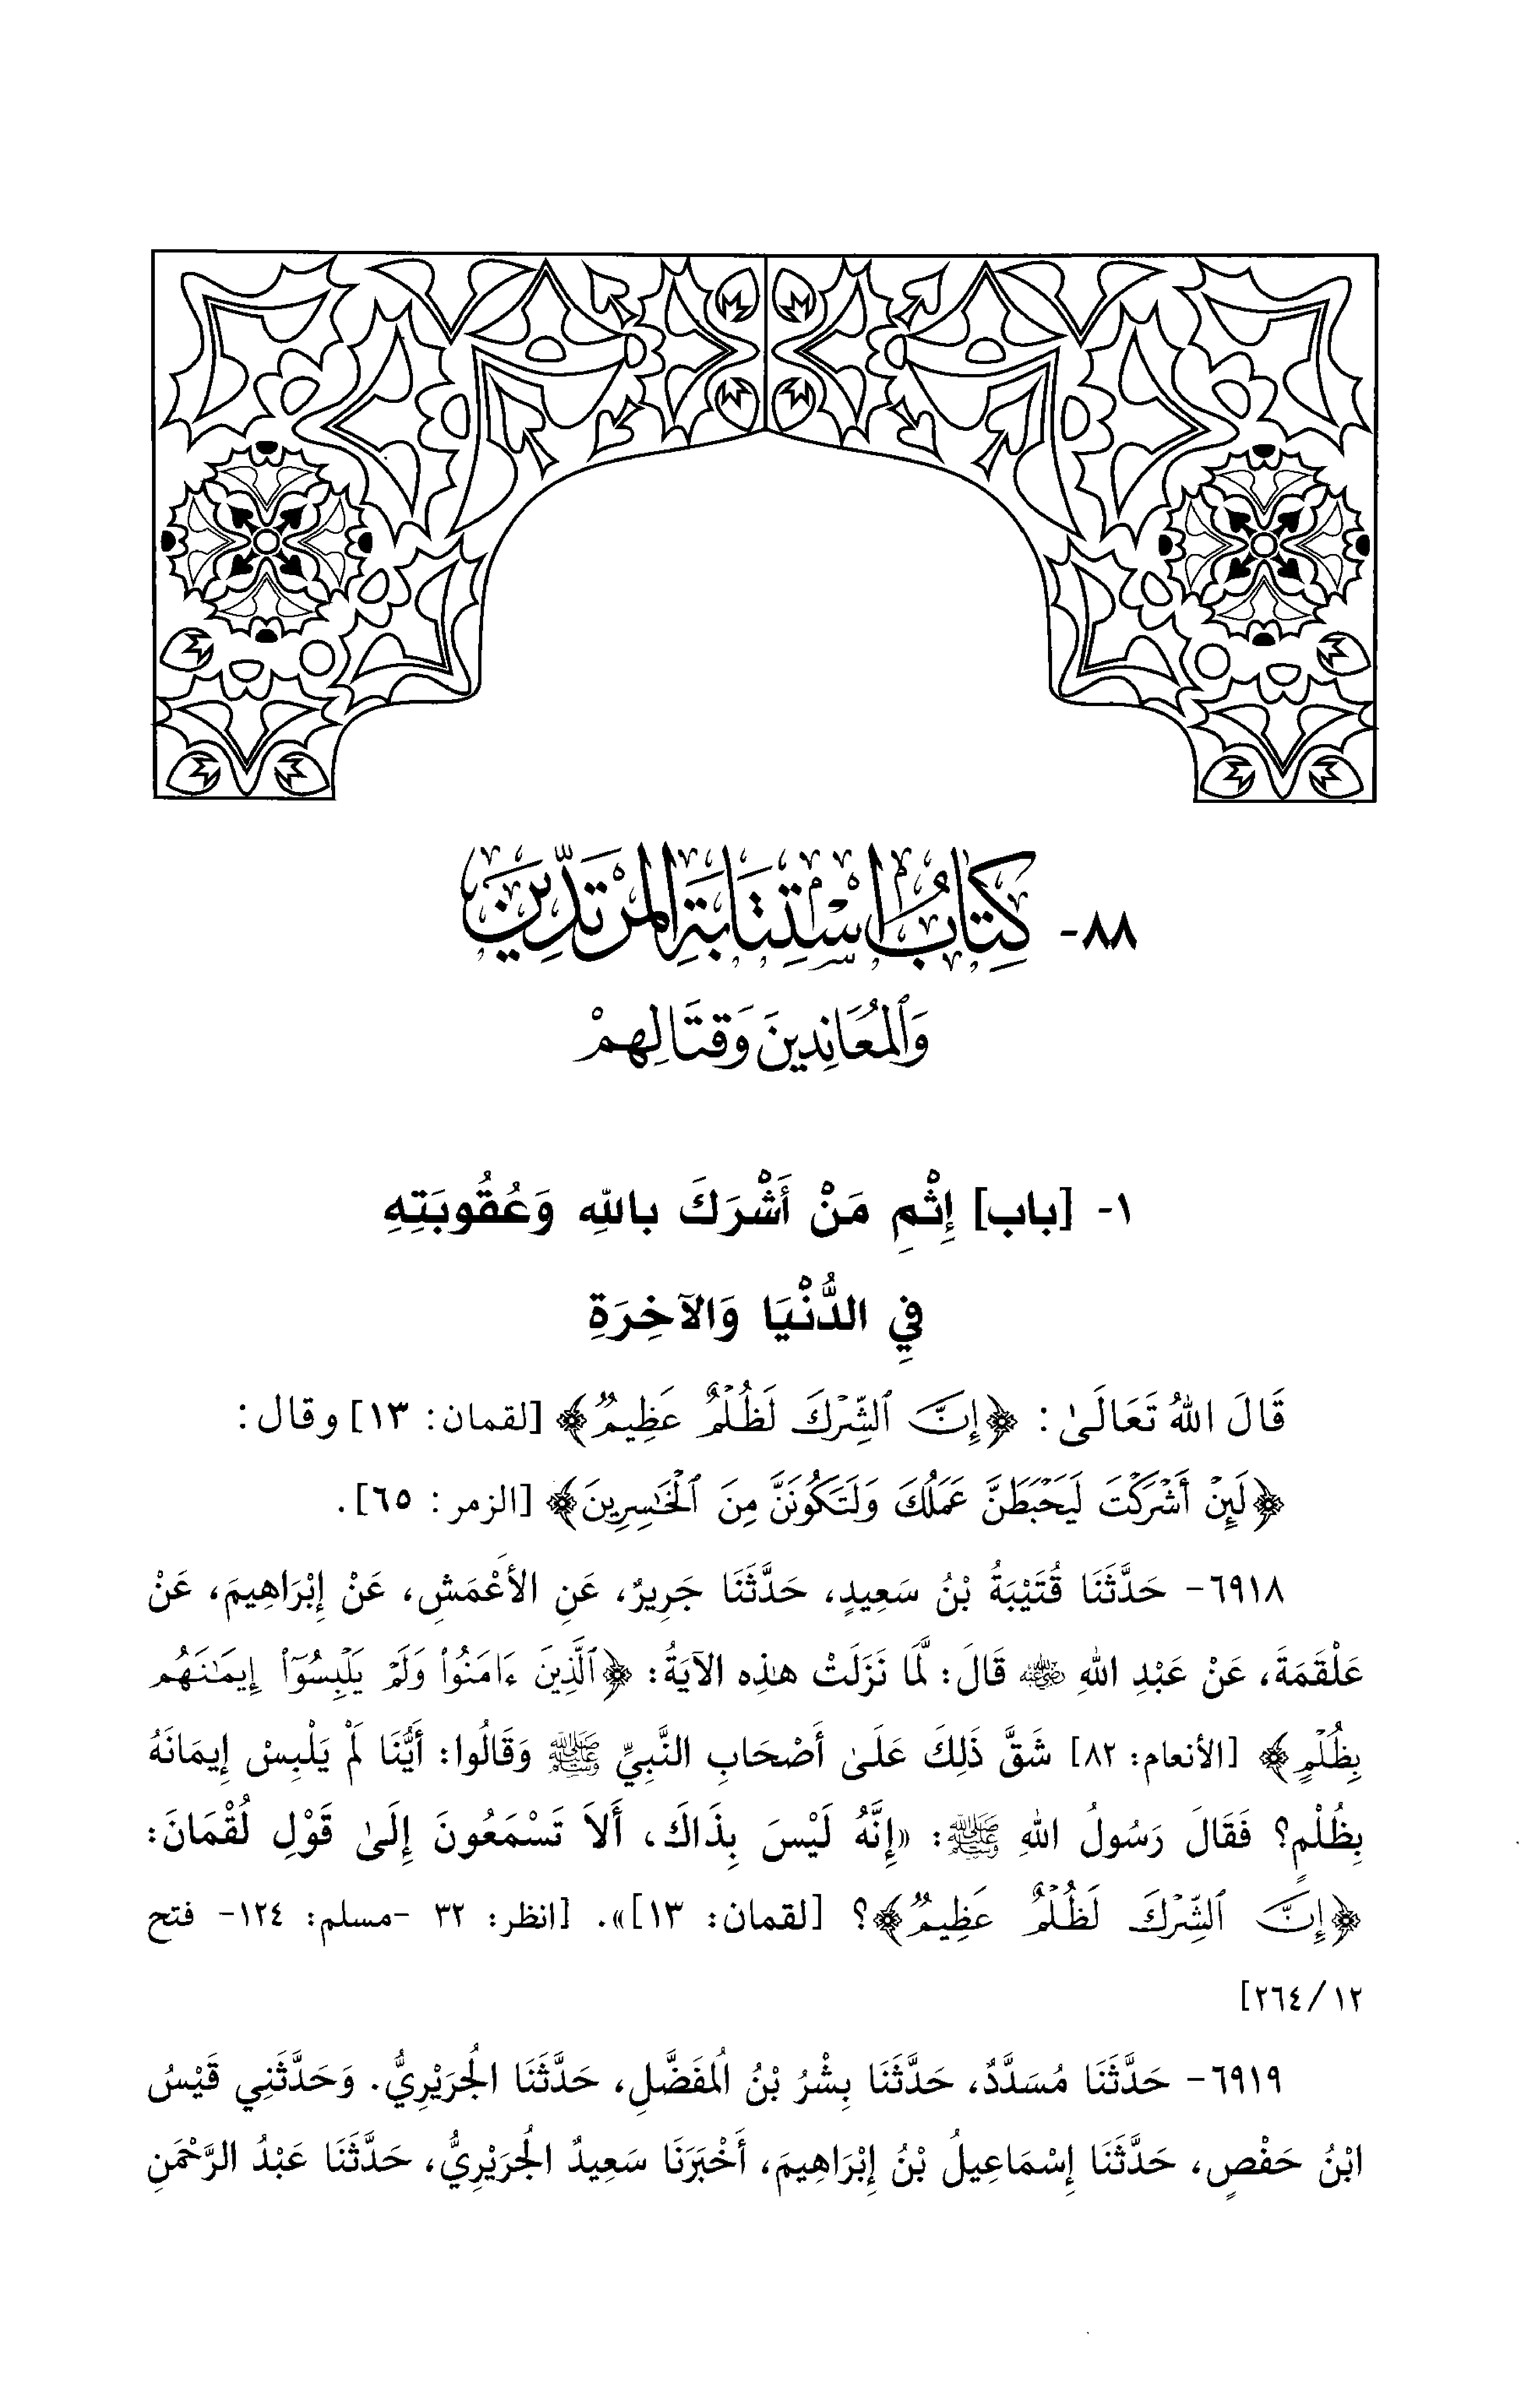 ٨٨- كِتَابُ اسْتِتَابَةِ المُرْتَدِّينَ
وَالْمُعَانِدِينَ وَقِتَالِهِمْ
١- [باب] إِثْمِ مَنْ أَشْرَكَ باللهِ وَعُقُوبَتِهِ
فِي الدُّنْيَا وَالآخِرَةِ
قَالَ اللهُ تَعَالَىٰ: ﴿إِنَّ ٱلشِّرْكَ لَظُلْمٌ عَظِيمٌ﴾ [لقمان: ١٣] وقال:
﴿لَئِنْ أَشْرَكْتَ لَيَحْبَطَنَّ عَمَلُكَ وَلَتَكُونَنَّ مِنَ ٱلْخَاسِرِينَ﴾ [الزمر: ٦٥].
٦٩١٨- حَدَّثَنَا قُتَيْبَةُ بْنُ سَعِيدٍ، حَدَّثَنَا جَرِيرٌ، عَنِ الأَعْمَشِ، عَنْ إِبْرَاهِيمَ، عَنْ
عَلْقَمَةَ، عَنْ عَبْدِ اللهِ رضي الله عنه قَالَ: لَمَّا نَزَلَتْ هذِه الآيَةُ: ﴿ٱلَّذِينَ ءَامَنُوا۟ وَلَمْ يَلْبِسُوٓا۟ إِيمَـٰنَهُم
بِظُلْمٍ﴾ [الأنعام: ٨٢] شَقَّ ذَلِكَ عَلَىٰ أَصْحَابِ النَّبِيِّ ﷺ وَقَالُوا: أَيُّنَا لَمْ يَلْبِسْ إِيمَانَهُ
بِظُلْمٍ؟ فَقَالَ رَسُولُ اللهِ ﷺ: «إِنَّهُ لَيْسَ بِذَاكَ، أَلاَ تَسْمَعُونَ إِلَىٰ قَوْلِ لُقْمَانَ:
﴿إِنَّ ٱلشِّرْكَ لَظُلْمٌ عَظِيمٌ﴾؟ [لقمان: ١٣]». [انظر: ٣٢ -مسلم: ١٢٤- فتح
١٢/٢٦٤]
٦٩١٩- حَدَّثَنَا مُسَدَّدٌ، حَدَّثَنَا بِشْرُ بْنُ الُمفَضَّلِ، حَدَّثَنَا الُجرَيْرِيُّ. وَحَدَّثَنِي قَيْسُ
ابْنُ حَفْصٍ، حَدَّثَنَا إِسْمَاعِيلُ بْنُ إِبْرَاهِيمَ، أَخْبَرَنَا سَعِيدٌ الُجرَيْرِيُّ، حَدَّثَنَا عَبْدُ الرَّحْمَنِ